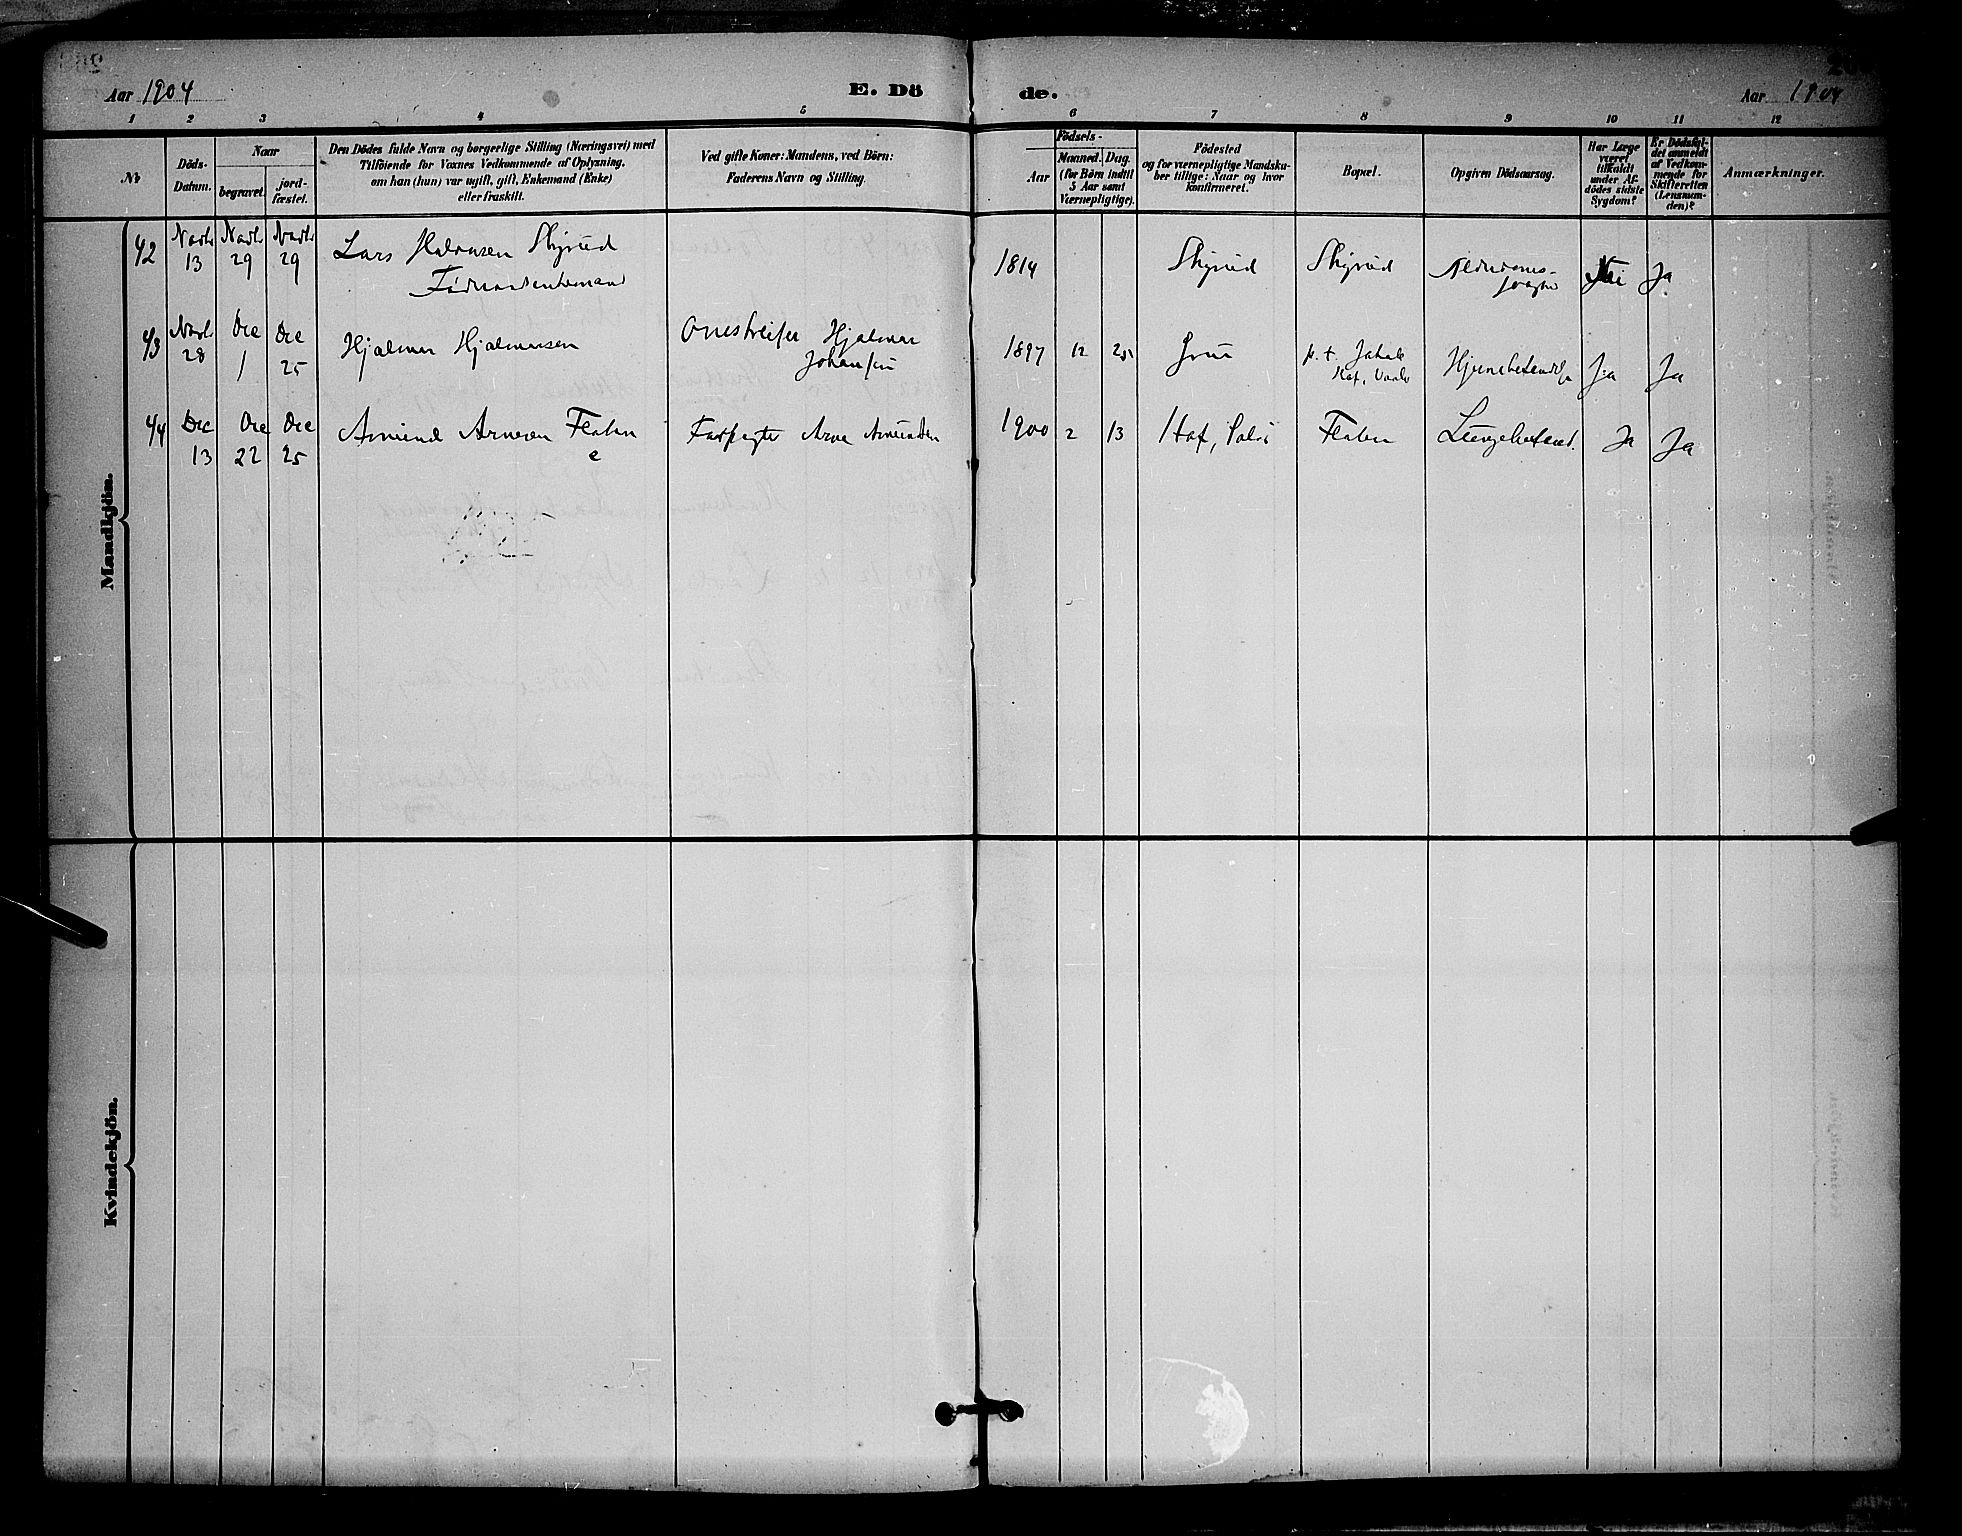 Aar 1904
E. Dö
de.
Aar 1904
1 2 3 4 5 6 7 8 9 10 11 12
№
Döds-
Datum.
Naar
begravet.
jord-
fæstet.
Den Dödes fulde Navn og borgerlige Stilling (Næringsvei) med
Tilföiende for Voxnes Vedkommende af Oplysning,
om han (hun) var ugift, gift, Enkemand (Enke)
eller fraskilt.
Ved gifte Koner: Mandens, ved Börn:
Faderens Navn og Stilling.
Födsels-
Aar
Maaned. Dag.
(for Börn indtil
5 Aar samt
Værnepligtige).
Födested
og for værnepligtige Mandska-
ber tillige: Naar og hvor
konfirmeret.
Bopæl.
Opgiven Dödsaarsag.
Har Læge
været
tilkaldt
under Af-
dödes sidste
Sygdom?
Er Dödsfal-
det anmeldt
af Vedkom-
mende for
Skifteretten
(Lensman-
den)?
Anmærkninger.
Mandkjön.
42
Novbr
13
Novbr
29
Novbr
29
Lars Halvorsen Skyrud
Föderaadsenkemand
1814
Skyrud
Skyrud
Alderdoms-
svaghed
Nei
Ja
43
Novbr
28
Dec
1
Dec
25
Hjalmar Hjalmarsen
Omstreifer Hjalmar
Johansen
1897
12
25
Grue
p. t.
Hof,
Hjernebetændelse
Ja
Ja
44
Dec
13
Dec
22
Dec
25
Amund Arnesen Flaten
e
Forpagter Arne Amundsen
1900
2
13
Hof, Solör
Flaten
Lungebetænd.
Ja
Ja
Kvindekjön.